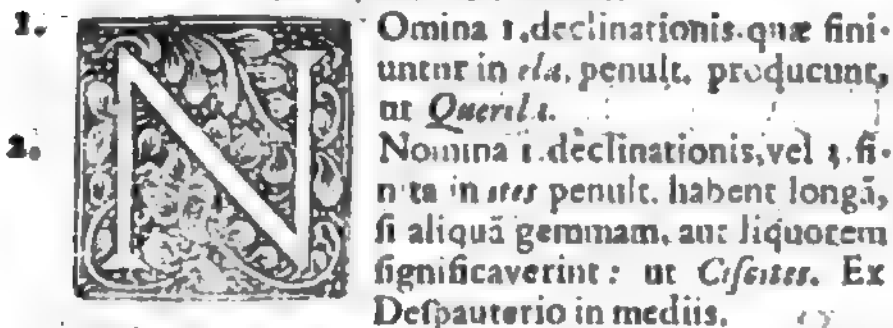 1. NOmina 1. declinationis quæ fini-
untur in ela, penult. producunt,
ut Querela.
2. Nomina 1. declinationis, vel 3. fi-
nita in ites penult. habent longã,
ſi aliquã gemmam, aut liquorem
ſignificaverint: ut Ciſsites. Ex
Deſpauterio in mediis.